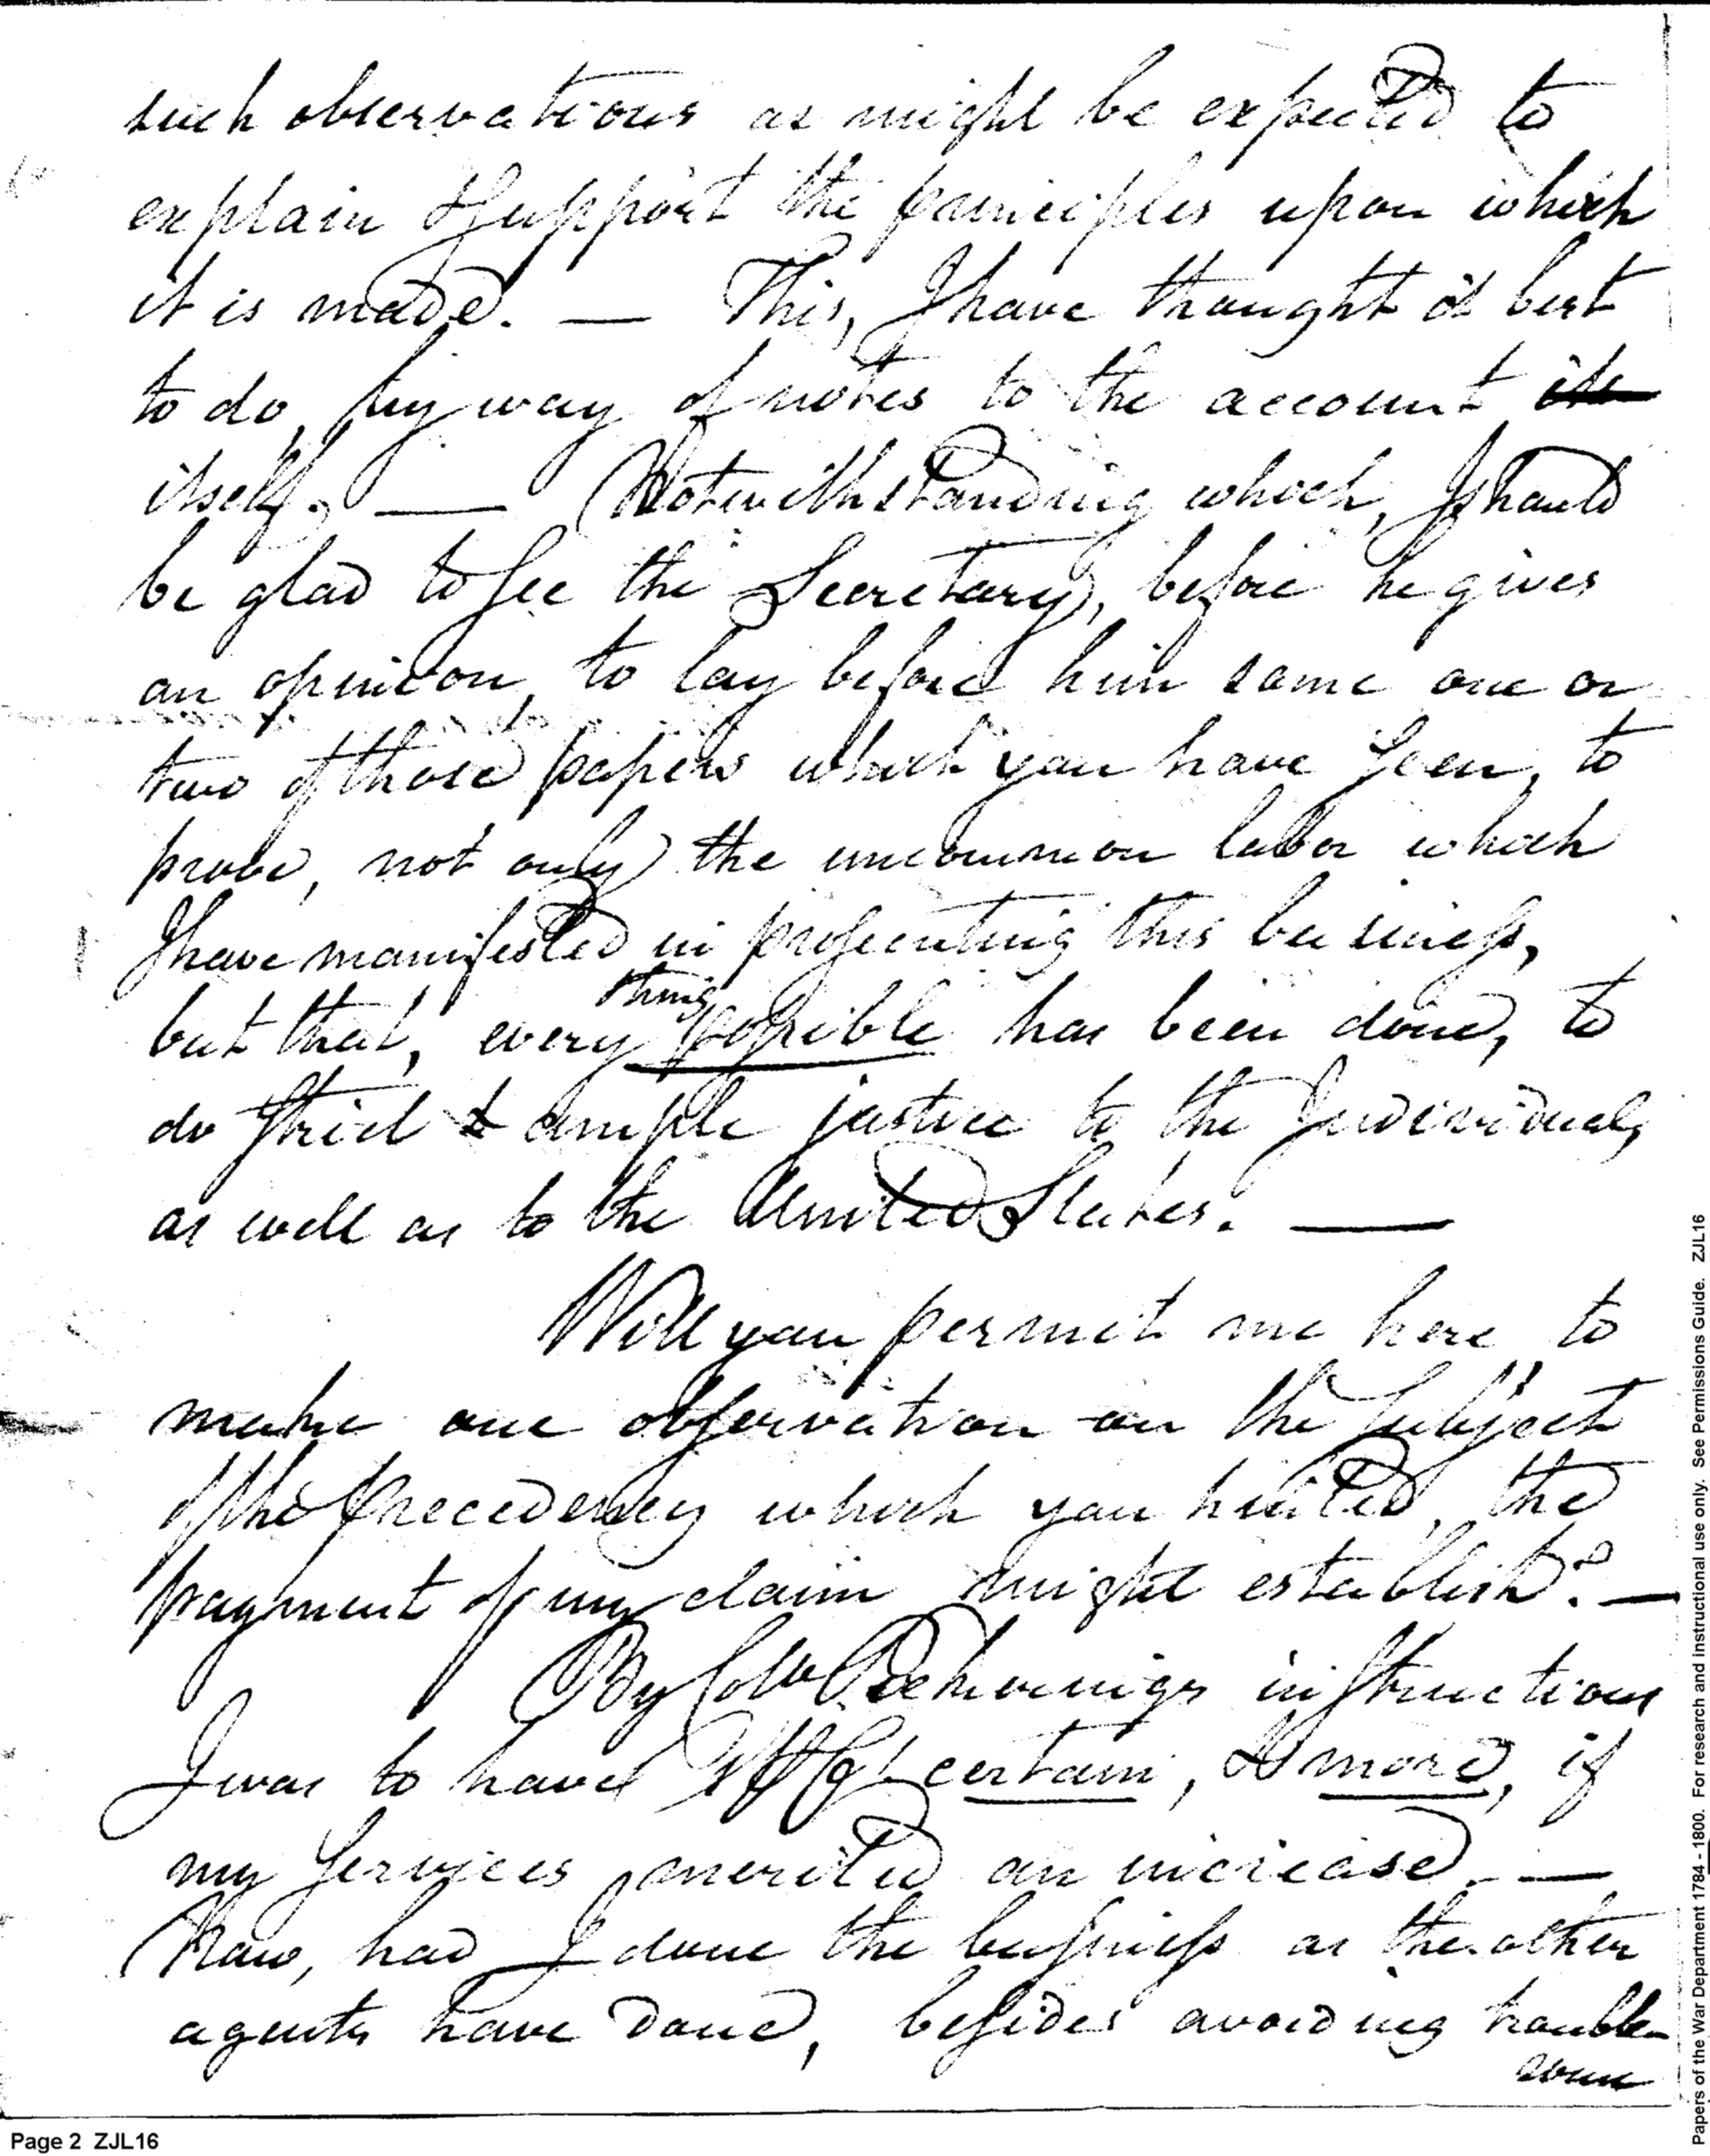 such observations as might be expected to
explain & support the principles upon which
it is made. — This, I have thought it best
to do, by way of notes to the account its
itself. — Notwithstanding which, I should
be glad to see the Secretary, before he gives
an opinion, to lay before him some one or
two of those papers which you have seen, to
prove, not only the uncommon labor which
I have manifested in prosecuting this business,
thing
but that, every possible has been done, to
do strict & ample justice to the Individual,
as well as to the United States. —
Will you permit me here to
make one observation on the subject
of the precedency which you hinted, the
payment of my claim might establish? —
By Colo. Pickerings instructions
I was to have certain, & more, if
my services merited an increase. —
Now, had I done the business as the other
agents have done, besides avoiding trouble-
some
Page 2 ZJL16
Papers of the War Department 1784 - 1800. For research and instructional use only. See Permissions Guide. ZJL16